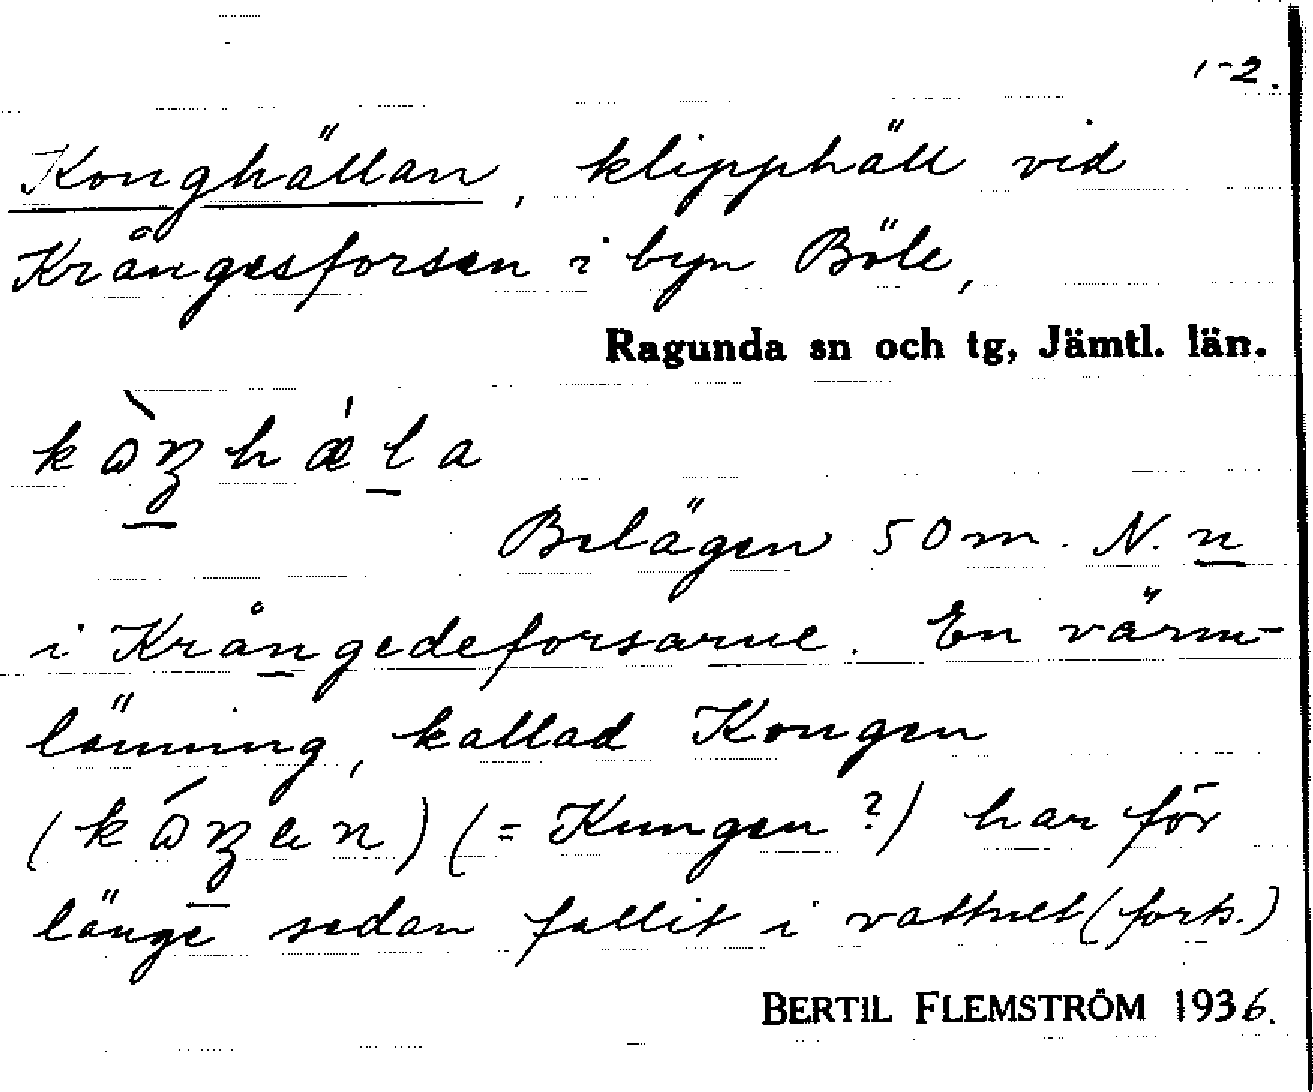 1-2.
Konghällan, klipphäll vid
Krångesforsen i byn Böle,
Ragunda sn och tg, Jämtl. län.
Belägen 50 m. N. n
i Krångedeforsarne. En värm-
länning, kallad Kongen
(= Kungen?) har för
länge sedan fallit i vattnet (forts.)
BERTIL FLEMSTRÖM 1936.